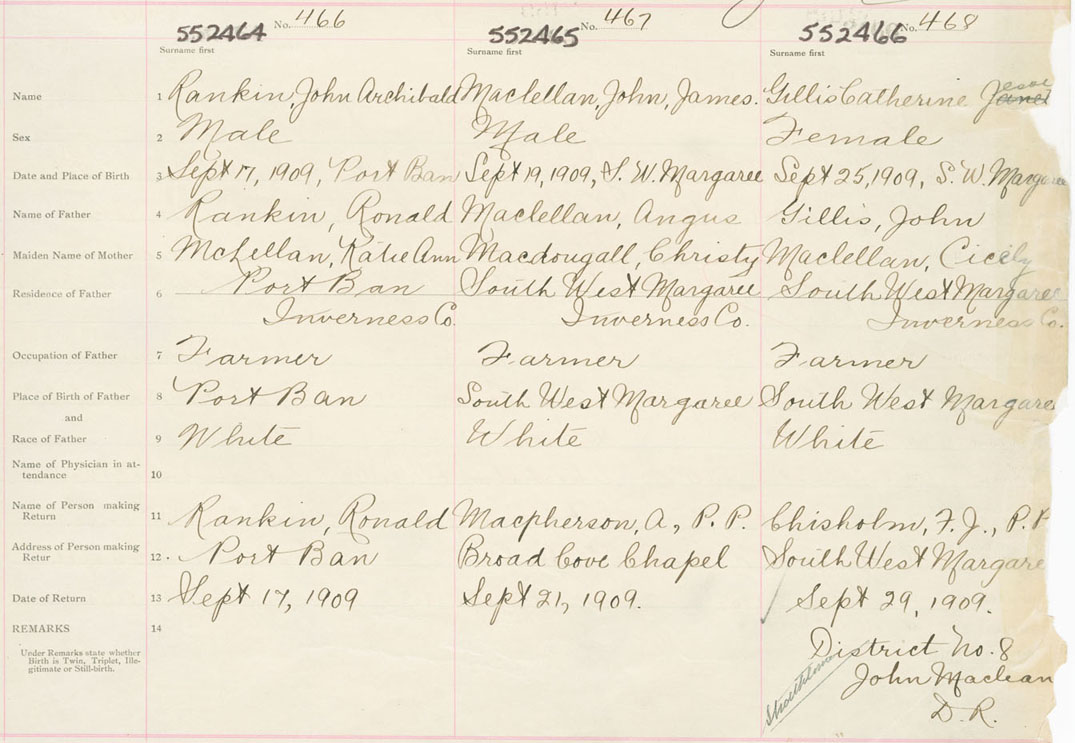 552464 No. 466 552465 No. 467 552466 No. 468
Surname first Surname first Surname first
Name 1 Rankin, John Archibald Maclellan, John, James. Gillis Catherine Janet Jessie
Sex 2 Male Male Female
Date and Place of Birth 3 Sept 17, 1909, Port Ban Sept 19, 1909, S. W. Margaree Sept 25, 1909, S. W. Margaree
Name of Father 4 Rankin, Ronald Maclellan, Angus Gillis, John
Maiden Name of Mother 5 McLellan, Katie Ann Macdougall, Christy Maclellan, Cicely
Residence of Father 6 Port Ban South West Margaree South West Margaree
Inverness Co. Inverness Co. Inverness Co.
Occupation of Father 7 Farmer Farmer Farmer
Place of Birth of Father 8 Port Ban South West Margaree South West Margaree
and
Race of Father 9 White White White
Name of Physician in at-
tendance 10
Name of Person making
Return 11 Rankin, Ronald Macpherson, A., P. P. Chisholm, F. J., P. P
Address of Person making
Retur 12. Port Ban Broad Cove Chapel South West Margare
Date of Return 13 Sept 17, 1909 Sept 21, 1909. Sept 29, 1909.
REMARKS 14
Under Remarks state whether
Birth is Twin, Triplet, Ille-
gitimate or Still-birth.
District No. 8
John Maclean
D. R.